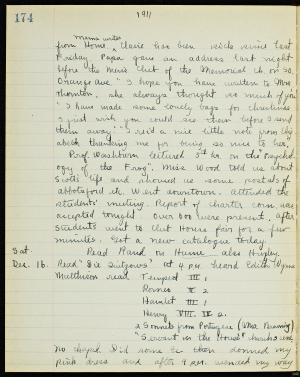 174
1911
Mama writes
from Home, Claire has been sick since last
Friday. Papa gave an address last night
before the Men's Club of the Memorial Ch. on So.
Orange Ave. "I hope you have written to Mrs.
Thornton, she always thought so much of you."
"I have made some lovely bags for Christmas
I just wish you could see them before I send
them away." Rec'd a nice little note from
thanking me for being so nice to her.
Prof. Washburn lectured 3rd hr. on the "Psychol-
ogy of the Frog". Miss Wood told us about
Scott's life and showed us some postals of
Abbotsford etc. Went downtown. Attended the
Students' meeting. Report of charter com. was
accepted tonight. Over 600 were present. After
Students' went to Club House fair for a few
minutes. Got a new catalogue today.
Sat. Read Rand on Hume. also Huxley.
Dec. 16. Read "Six Sixtyows" at 4 P.M. heard Edith Wynne
Matthison read Tempest III 1
Romeo II 2
Hamlet III 1
Henry VIII. II 2.
2 Sonnets from Portuguese (Mrs. Browning)
"Servant in the House"
No chapel. Did some then donned my
pink dress and after 9 P.M. wended my way